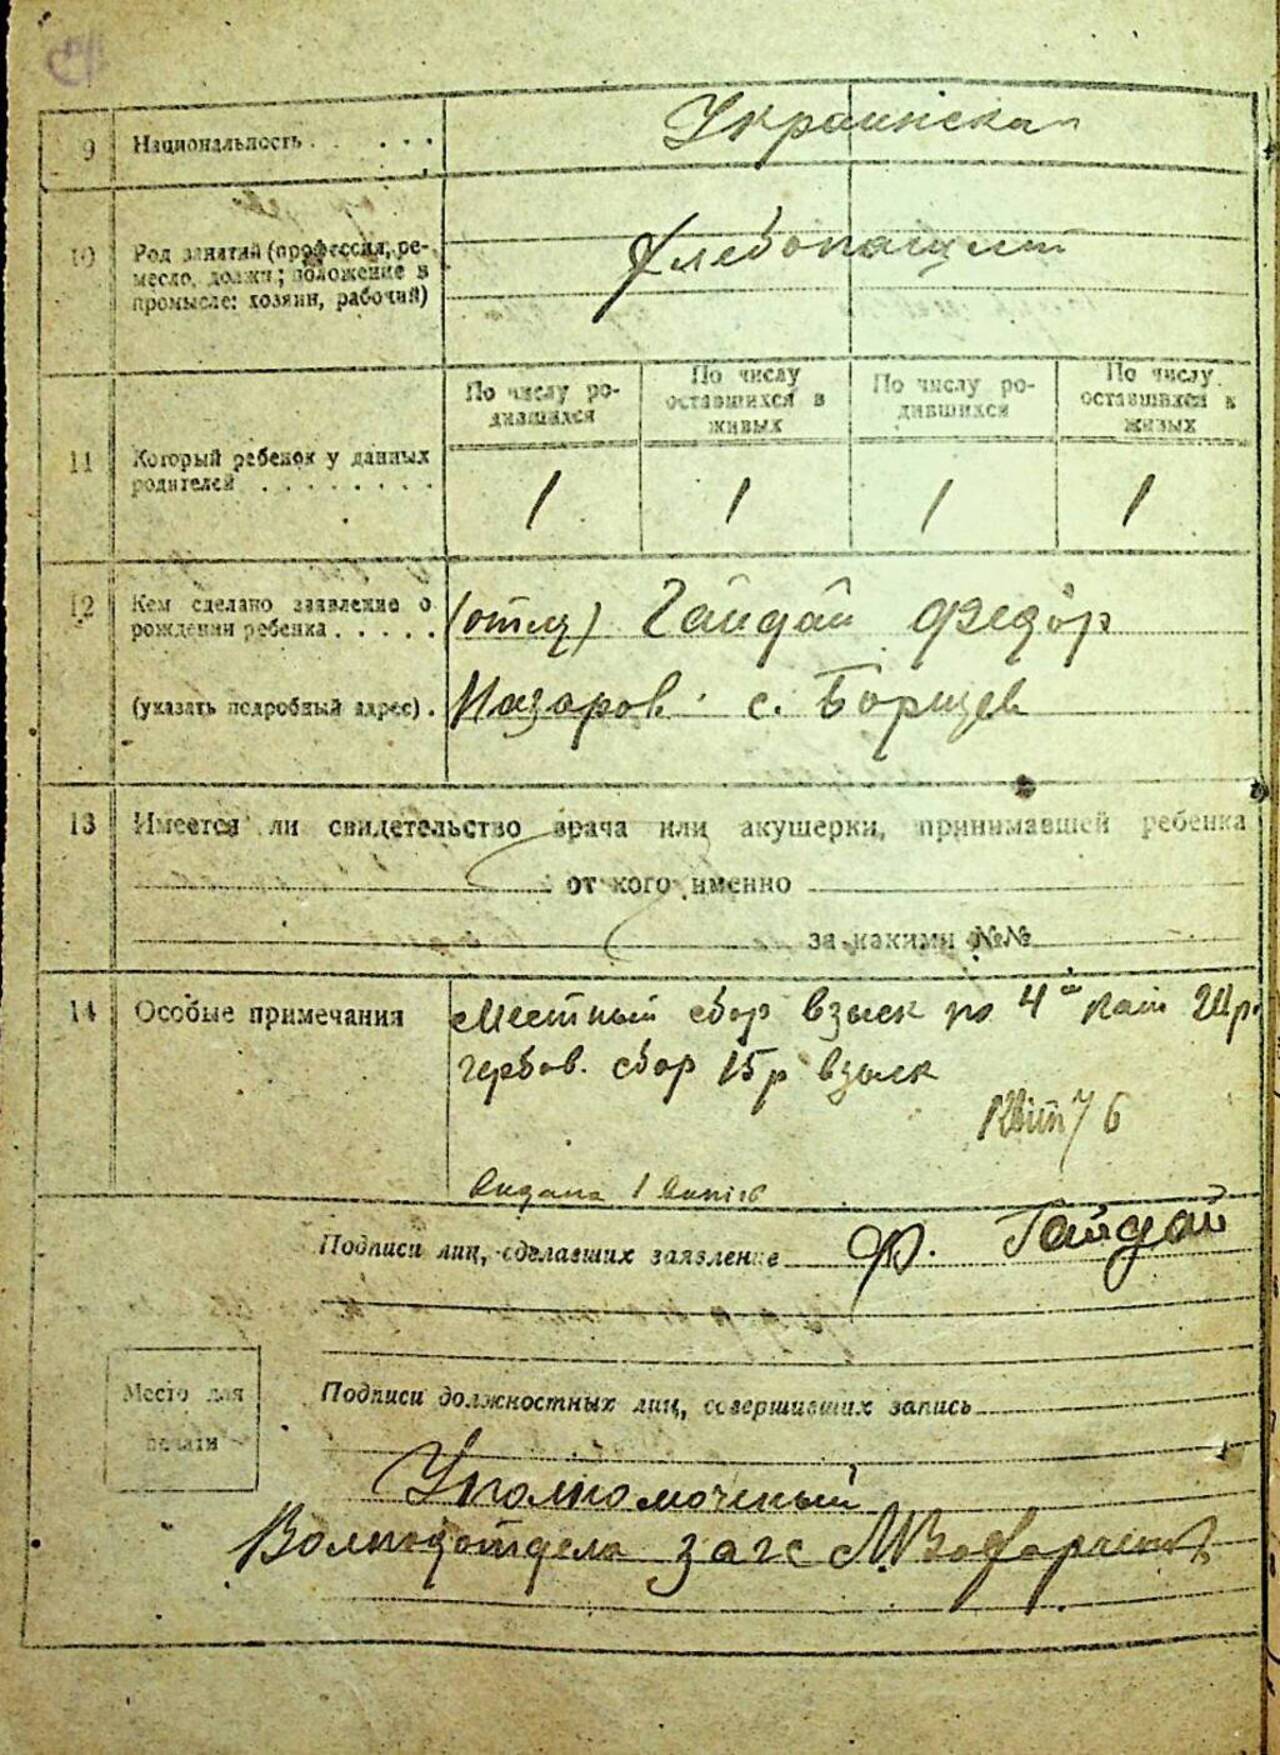 9 Национальность . . . . . Украинская
10 Род занятий (профессия, ре-
месло, должн; положение в
промысле: хозяин, рабочий)
Хлебопашцы
По числу ро-
дившихся
По числу
оставшихся в
живых
По числу ро-
дившихся
По числу
оставшихся в
живых
11 Который ребенок у данных
родителей . . . . . . . .
1 1 1 1
12 Кем сделано заявление о
рождении ребенка . . . . .
(указать подробный адрес) .
(отец) Гайдай Федор
Назаров. с. Борщев
13 Имеется ли свидетельство врача или акушерки, принимавшей ребенка
от кого именно
за какими №№
14 Особые примечания
Местный сбор взыск по 4й кат
гербов. сбор 15р взыск
76
Видана 1
Подписи лиц, сделавших заявление Ф. Гайдай
Место для
печати
Подписи должностных лиц, совершивших запись
Уполномоченный
загс